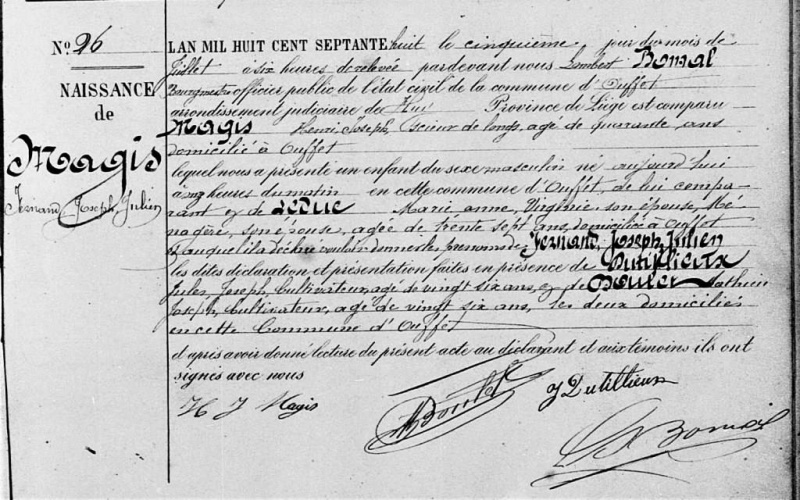 N° 26
NAISSANCE
de
Magis
Fernand, Joseph, Julien
LAN MIL HUIT CENT SEPTANTE huit le cinquième jour du mois de
Juillet à six heures de relevée pardevant nous Lambert Bomal
Bourgmestre officier public de l'état civil de la commune d'Ouffet
arrondissement judiciaire de Huy Province de Liège est comparu
Magis Henri Joseph, scieur de long, agé de quarante ans
domicilié à Ouffet
lequel nous a présenté un enfant du sexe masculin né aujourd'hui
à heures du matin en cette commune d'Ouffet, de lui compa-
rant & de Leduc Marie anne, Virginie son épouse, Mé-
nagère, son épouse, agée de trente sept ans, domiciliée à Ouffet
& auquel il a déclaré vouloir donner les prénoms de Fernand, Joseph, Julien
les dites déclaration et présentation faites en présence de Dutillieux
Jules, Joseph, Cultivateur, agé de vingt six ans, & de Doulet Mathieu
Joseph, Cultivateur, agé de vingt six ans, les deux domiciliés
en cette Commune d'Ouffet
et après avoir donné lecture du présent acte au déclarant et aux témoins ils ont
signés avec nous
H J Magis
M Doulet
J Dutillieux
Bomal